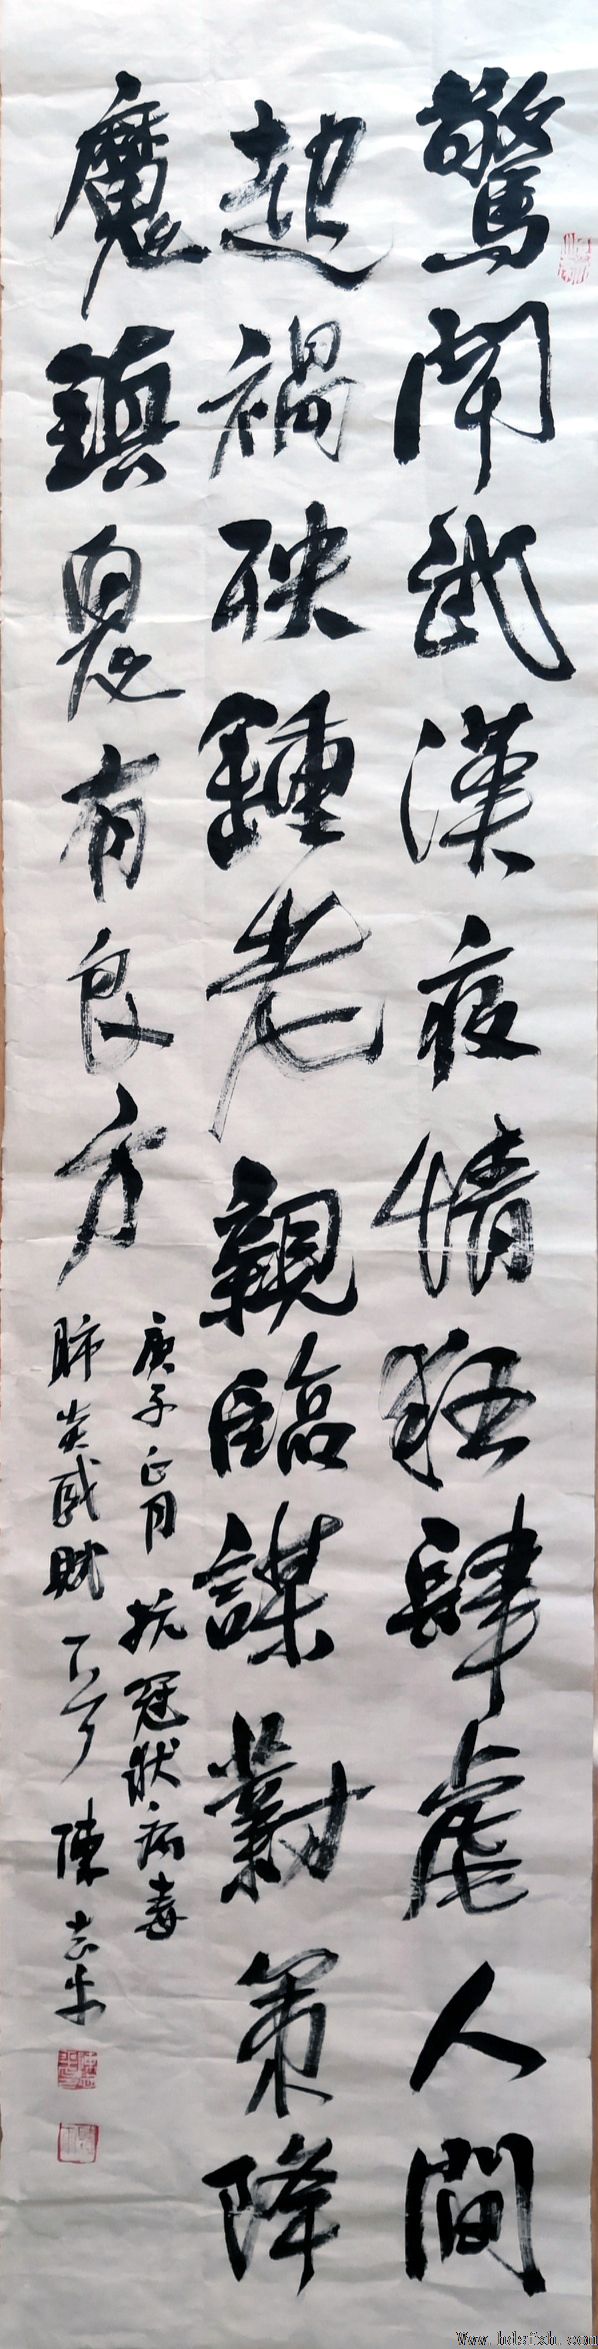 驚聞武漢疫情狂肆虐人間
起禍殃鍾老親臨謀對策降
魔鎮鬼有良方
庚子正月抗冠狀病毒
肺炎感賦 陳志
Www.hdsfxh.com